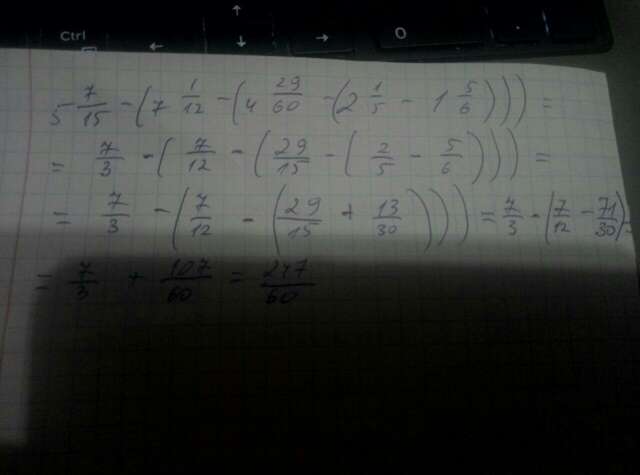 Ctrl
↑
← ↓ → 0
5 7/15 - (7 1/12 - (4 29/60 - (2 1/5 - 1 5/6))) =
= 7/3 - (7/12 - (29/15 - (2/5 - 5/6))) =
= 7/3 - (7/12 - (29/15 + 13/30))) = 7/3 - (7/12 - 71/30) =
= 7/3 + 107/60 = 247/60